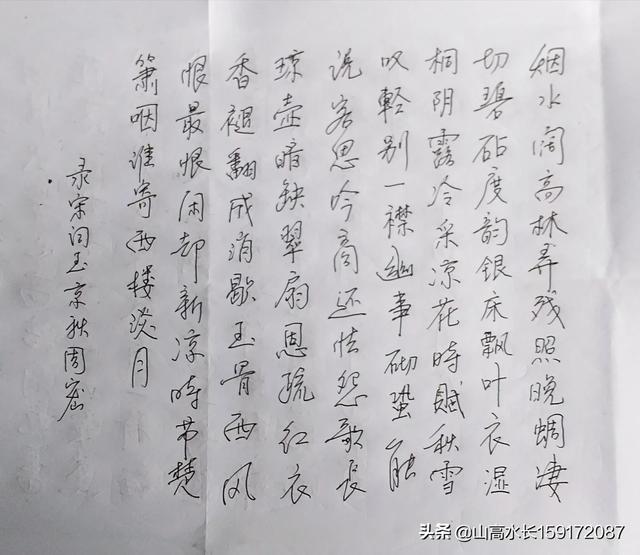 烟水阔高林弄残照晚蜩凄
切碧砧度韵银床飘叶衣湿
桐阴露冷采凉花時赋秋雪
叹輕别一襟幽事砌蛩能
说客思吟商还怯怨歌长
琼壶暗缺翠扇恩疏红衣
香褪翻成消歇玉骨西风
恨最恨闲却新凉時节楚
箫咽谁寄西楼淡月
录宋词玉京秋周密
头条@山高水长159172087